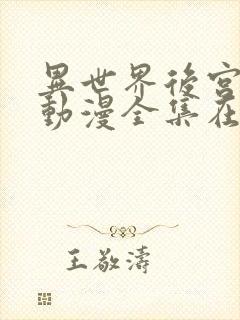 異世界後宮
動漫全集在
王敬濤